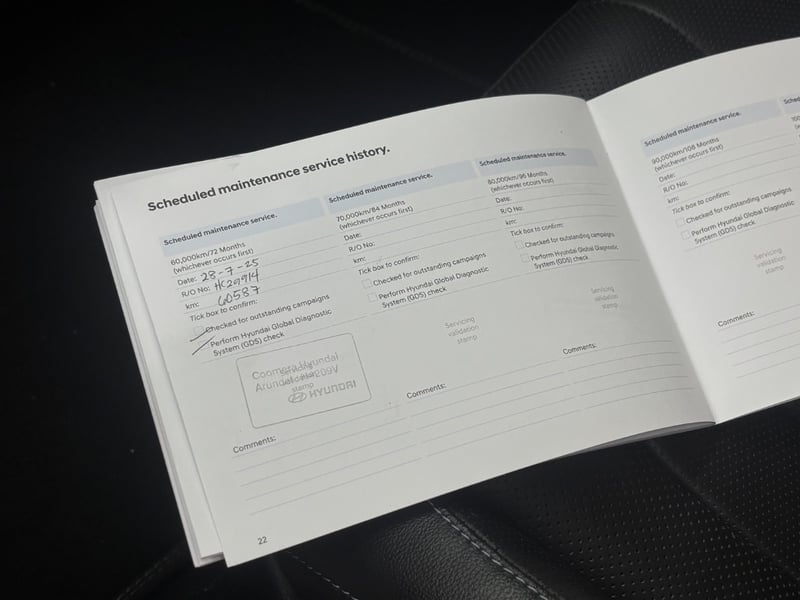 Scheduled maintenance service history.
Scheduled maintenance service.
60,000km/72 Months
(whichever occurs first)
Date: 28-7-25
R/O No: HC29914
km: 60587
Tick box to confirm:
Checked for outstanding campaigns
Perform Hyundai Global Diagnostic
System (GDS) check
Coomera Hyundai
Arundel
209V
stamp
HYUNDAI
Comments:
Scheduled maintenance service.
70,000km/84 Months
(whichever occurs first)
Date:
R/O No:
km:
Tick box to confirm:
Checked for outstanding campaigns
Perform Hyundai Global Diagnostic
System (GDS) check
Servicing
validation
stamp
Comments:
Scheduled maintenance service.
80,000km/96 Months
(whichever occurs first)
Date:
R/O No:
km:
Tick box to confirm:
Checked for outstanding campaigns
Perform Hyundai Global Diagnostic
System (GDS) check
Servicing
validation
stamp
Comments:
22
Scheduled maintenance service.
90,000km/108 Months
(whichever occurs first)
Date:
R/O No:
km:
Tick box to confirm:
Checked for outstanding campaigns
Perform Hyundai Global Diagnostic
System (GDS) check
Servicing
validation
stamp
Comments: